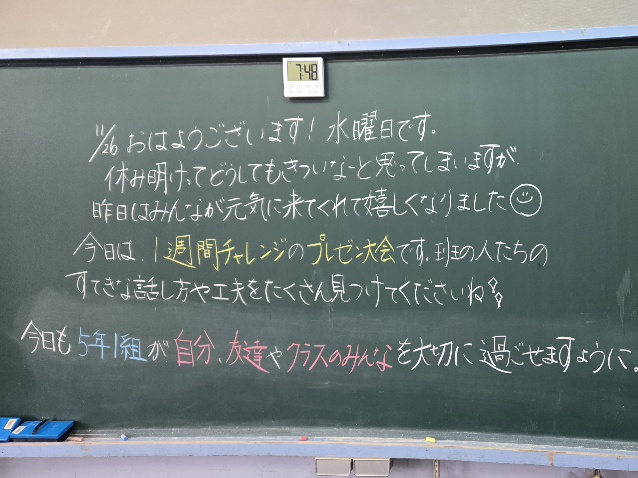 7:48
11/26 おはようございます! 水曜日です。
休み明けってどうしてもきついなーと思ってしまいますが
昨日はみんなが元気に来てくれて嬉しくなりました☺
今日は、1週間チャレンジのプレゼン大会です。班の人たちの
すてきな話し方や工夫をたくさん見つけてくださいね
今日も5年1組が自分、友達やクラスのみんなを大切に過ごせますように。